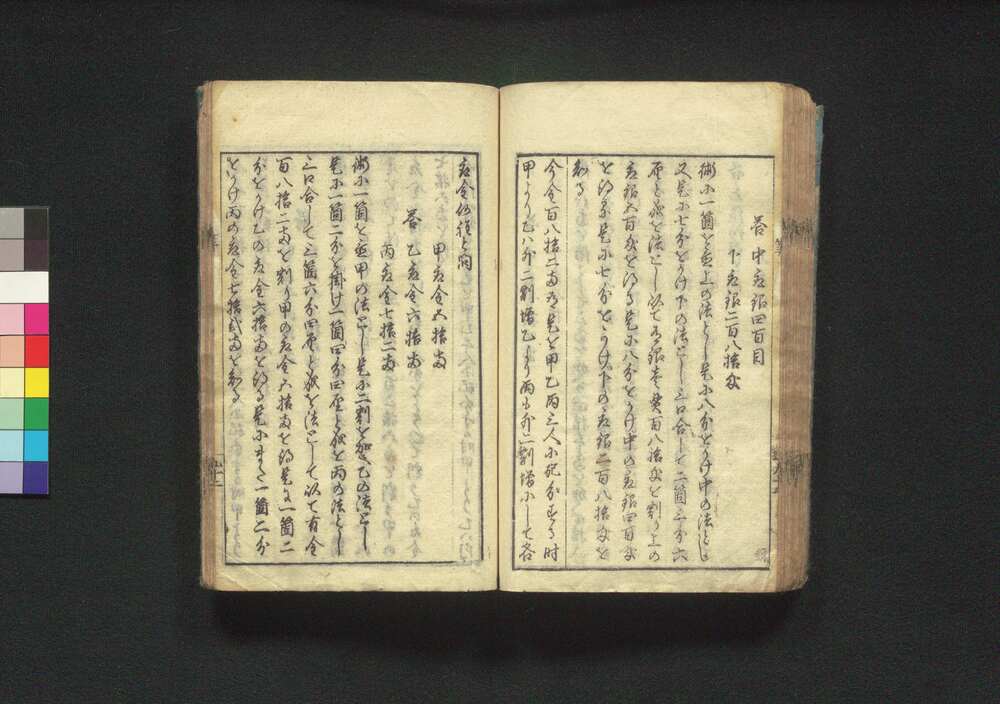 答 中 銀四百目
下 銀二百八拾匁
術に一箇を置上の法とし是に八分をかけ中の法とし
又是に七分をかけ下の法とし三口合して二箇三分六
厘と成を法とし以て有銀壱貫百八拾匁を割り上の
銀五百匁を得る是に八分をかけ中の 銀四百匁
を得る亦是に七分をかけ下の 銀二百八拾匁を
知る
今金百八拾二両あり是を甲乙丙三人に配分する時
甲より乙ハ外二割増乙より丙も外二割増にして各
金何程と問
甲 金五拾両
答 乙 金六拾両
丙 金七拾二両
術に一箇を置甲の法とし是に二割を加へ乙の法とし
是に一箇二分を掛け一箇四分四厘と成を丙の法とし
三口合して三箇六分四厘と成を法として以て有金
百八拾二両を割り甲の 金五拾両を得る是に一箇二
分をかけ乙の 金六拾両を得る是にまた一箇二分
をかけ丙の 金七拾弐両を知る